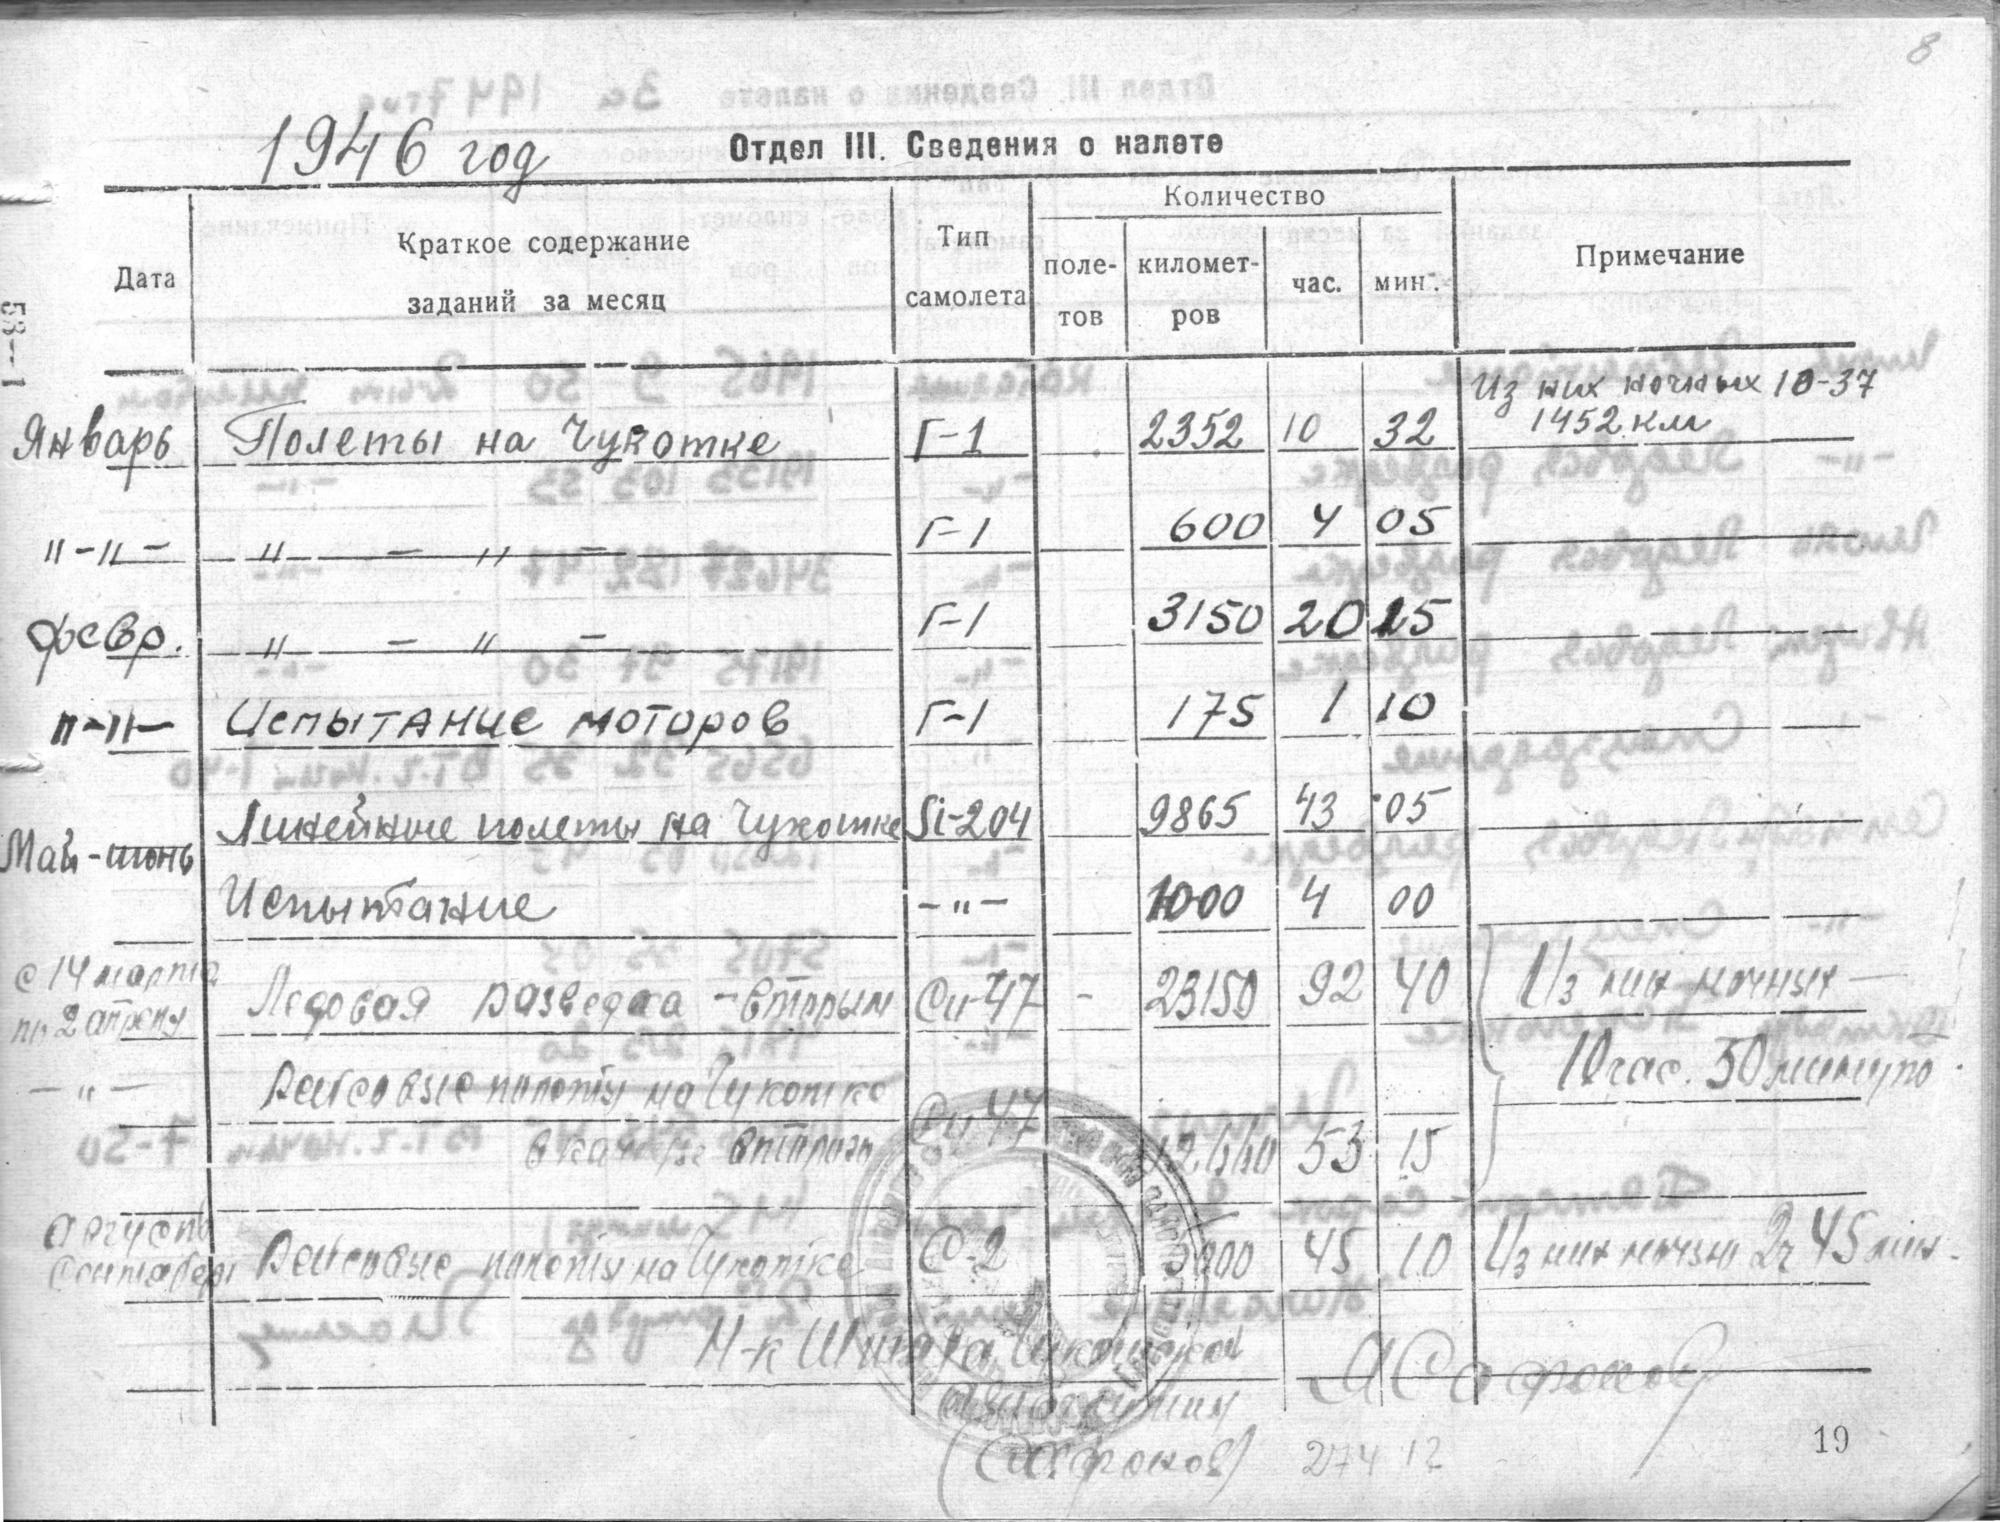 8
1946 год
Отдел III. Сведения о налете
Дата
Краткое содержание
заданий за месяц
Тип
самолета
Количество
поле-
тов
километ-
ров
час.
мин.
Примечание
53—1
Из них ночных 10-37
1452 км
Январь Полеты на Чукотке Г-1 2352 10 32
"-"- " - " - Г-1 600 4 05
февр. " - " - Г-1 3150 20 25
"-"- Испытание моторов Г-1 175 1 10
Май-июнь Линейные полеты на Чукотке Si-204 9865 43 05
Испытание -"- 1000 4 00
с 14 марта
по 2 апреля Ледовая разведка - вторым Си-47 - 23150 92 40 Из них ночных —
10 час. 50 минут
-"- Рейсовые полеты на Чукотке Си-47
в кач-ве второго 53 15
Август
Сентябрь Рейсовые полеты на Чукотке С-2 45 10 Из них ночью 2ч 45 мин.
Н-к Штаба Чукотской
авиагруппы
(Сафронов) 274 12
19